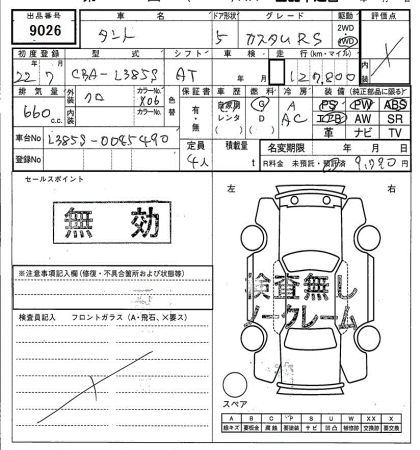 出品番号 車名 ドア形状 グレード 駆動 評価点
9026 タント 5 カスタムRS 2WD 4WD
初度登録 型式 シフト 車検 走行(km・マイル) 内装
22年7月 CBA-L385S AT 年 月 127,800
排気量 外装 カラーNo. 色替 保証書 車歴 燃料 冷房 装備(純正部品に限る)
660c.c. クロ X06 有・無 自家用 レンタ G D A AC PS PW ABS
内装 カラーNo. エアB AW SR
革 ナビ TV
車台No. L385S-0085490 定員 積載量 名変期限 年 月 日
登録No. 4人 t R料金 未預託・預託済 9,790円
セールスポイント
無効
左 右
※注意事項記入欄(修復・不具合箇所および状態等)
検査員記入 フロントガラス(A・飛石、×要ス)
検査無し
ノークレーム
スペア
A B C P S U W XX X
線キズ 要板金 腐蝕 要塗装 サビ 凹凸 補修跡 交換跡 要交換